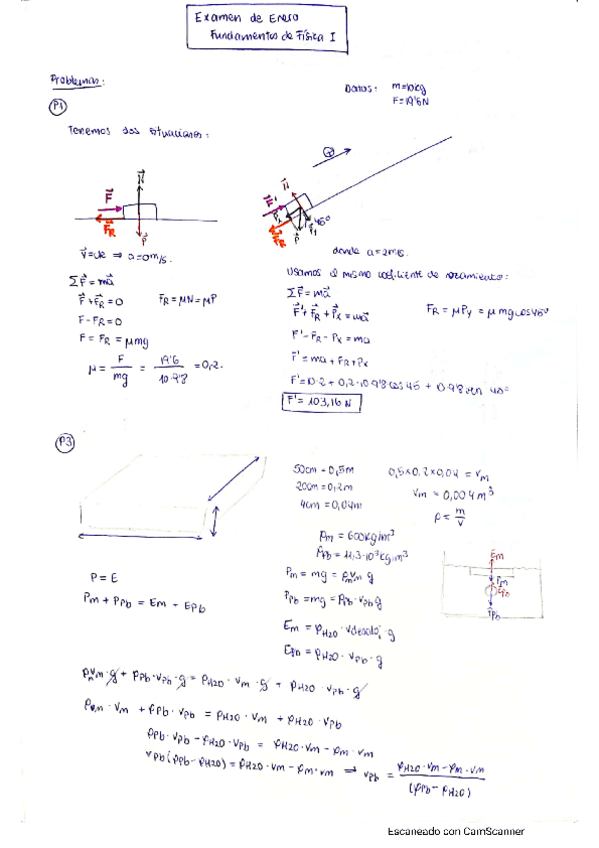 Examen de Enero
Fundamentos de Física I
Problemas:
Datos: m=10kg
F=19'6N
P1
Tenemos dos situaciones:
+
N
F
FR
P
N
F'
Px
FR
P
Py
45º
v=cte ⇒ a=0m/s.
donde a=2m/s.
Usamos el mismo coeficiente de rozamiento:
ΣF=ma
F+FR=0
FR=μN=μP
F-FR=0
F=FR=μmg
μ= F/mg = 19'6/10·9'8 =0,2.
ΣF=ma
F'+FR+Px=ma
FR=μPy=μmgcos45º
F'-FR-Px=ma
F'=ma+FR+Px
F'=10·2+0,2·10·9'8cos45+10·9'8sen
F'=103,16N
P3
50cm=0,5m
0,5×0,2×0,04=Vm
20cm=0,2m
Vm=0,004m³
4cm=0,04m
ρ=m/V
ρm=600kg/m³
ρPb=11,3·10³kg/m³
P=E
Pm=mg=ρmVm g
Pm+PPb=Em+EPb
PPb=mg=ρPb·VPb g
Em=ρH2O·Vdesaloj·g
EPb=ρH2O·VPb·g
Em
Pm
EPb
PPb
ρmVm·g+ρPb·VPb·g=ρH2O·Vm·g+ρH2O·VPb·g
ρm·Vm+ρPb·VPb=ρH2O·Vm+ρH2O·VPb
ρPb·VPb-ρH2O·VPb=ρH2O·Vm-ρm·Vm
VPb(ρPb-ρH2O)=ρH2O·Vm-ρm·Vm ⇒ VPb= ρH2O·Vm-ρm·Vm/(ρPb-ρH2O)
Escaneado con CamScanner